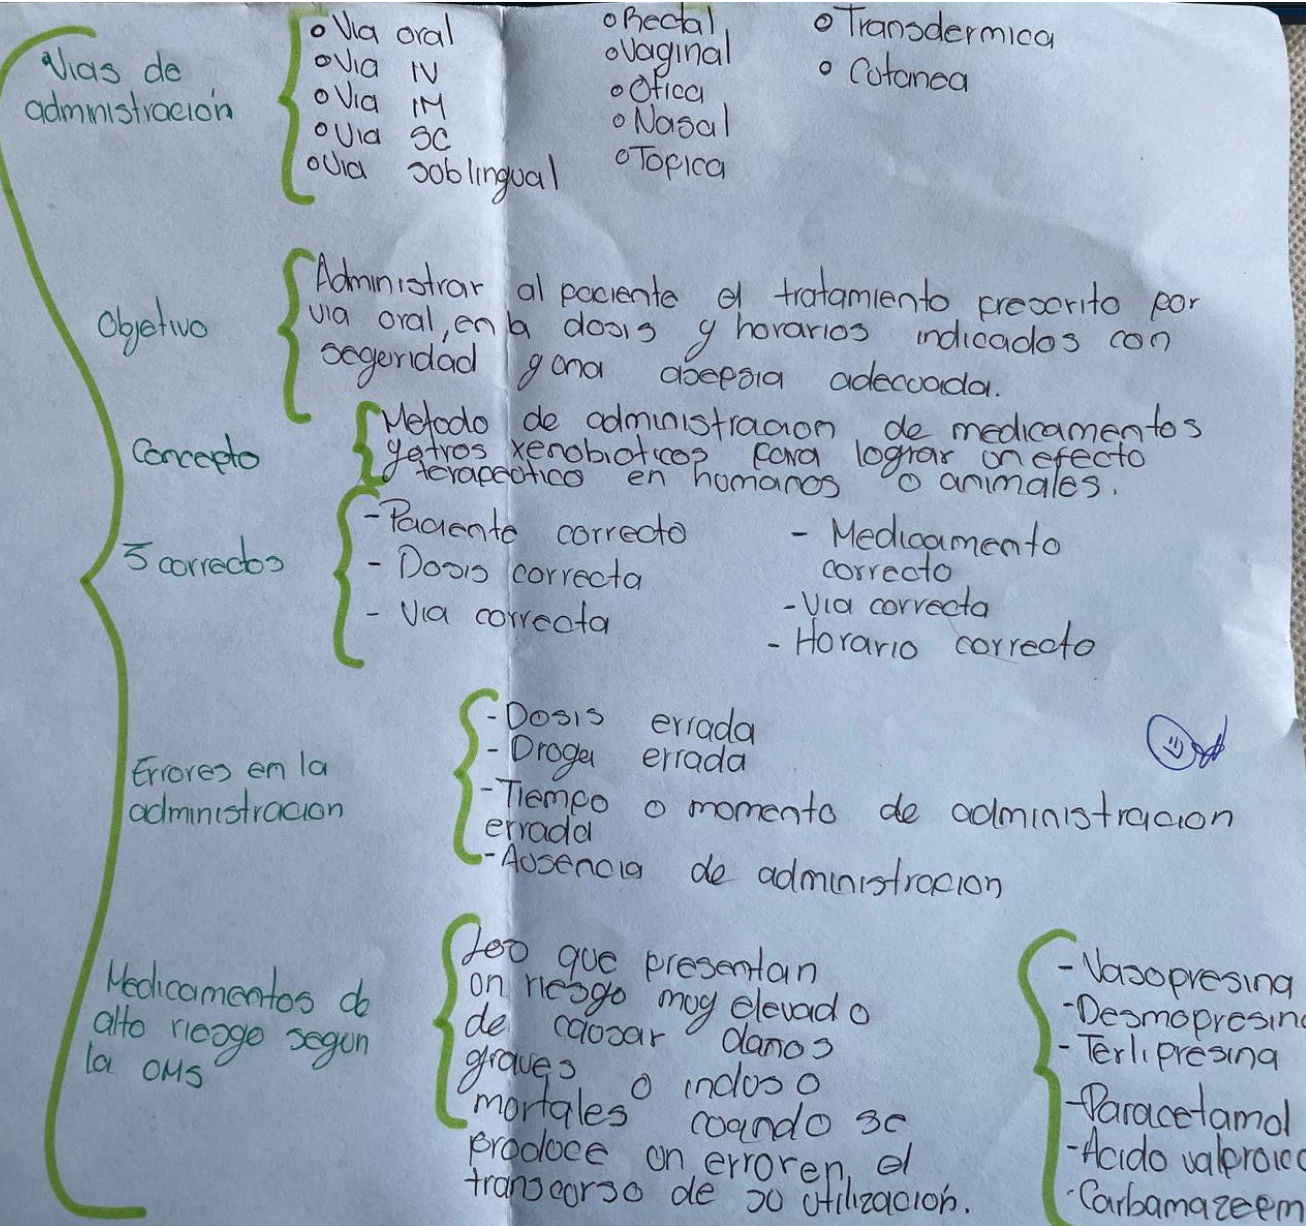 Vias de
administración
o Via oral
o Via IV
o Via IM
o Via SC
o Via soblingual
o Rectal
o Vaginal
o Otica
o Nasal
o Topica
o Transdermica
o Cutanea
Objetivo
Administrar al paciente el tratamiento prescrito por
via oral, en la dosis y horarios indicados con
seguridad y una asepsia adecuada.
Concepto
Metodo de administracion de medicamentos
y otros xenobioticos para lograr un efecto
terapeutico en humanos o animales.
5 correctos
- Paciente correcto
- Dosis correcta
- Via correcta
- Medicamento
correcto
- Via correcta
- Horario correcto
Errores en la
administracion
- Dosis errada
- Droga errada
- Tiempo o momento de administracion
errada
- Ausencia de administracion
Medicamentos de
alto riesgo segun
la OMS
Los que presentan
un riesgo muy elevado
de causar danos
graves o incluso
mortales cuando se
produce un error en el
transcurso de su utilización.
- Vasopresina
- Desmopresina
- Terlipresina
- Paracetamol
- Acido valproico
- Carbamazeem